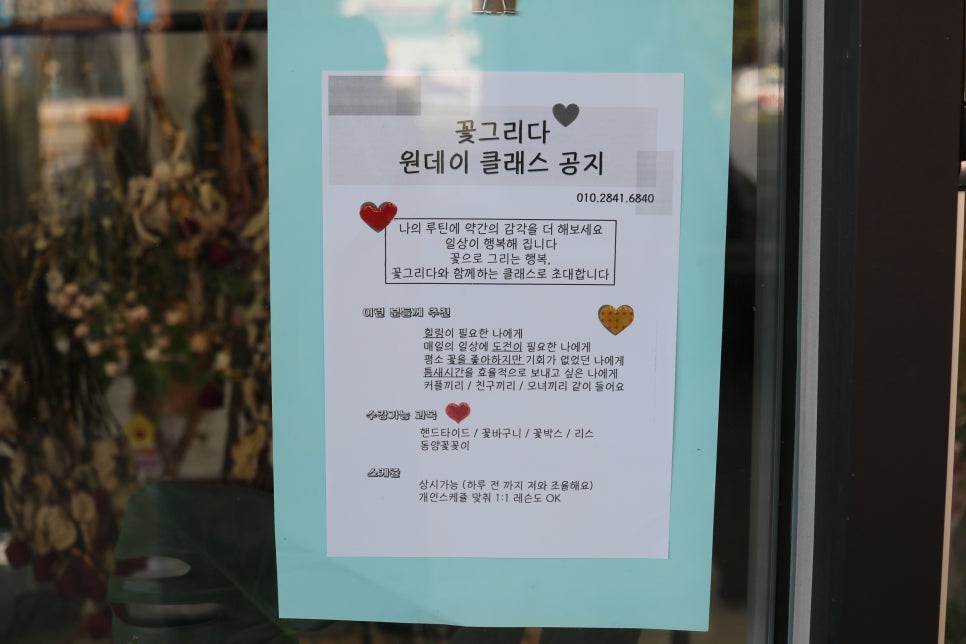 꽃그리다
원데이 클래스 공지
010.2841.6840
나의 루틴에 약간의 감각을 더 해보세요
일상이 행복해 집니다
꽃으로 그리는 행복,
꽃그리다와 함께하는 클래스로 초대합니다
이런 분들께 추천
힐링이 필요한 나에게
매일의 일상에 도전이 필요한 나에게
평소 꽃을 좋아하지만 기회가 없었던 나에게
틈새시간을 효율적으로 보내고 싶은 나에게
커플끼리 / 친구끼리 / 모녀끼리 같이 들어요
수강가능 과목
핸드타이드 / 꽃바구니 / 꽃박스 / 리스
동양꽃꽂이
스케쥴
상시가능 (하루 전 까지 저와 조율해요)
개인스케쥴 맞춰 1:1 레슨도 OK